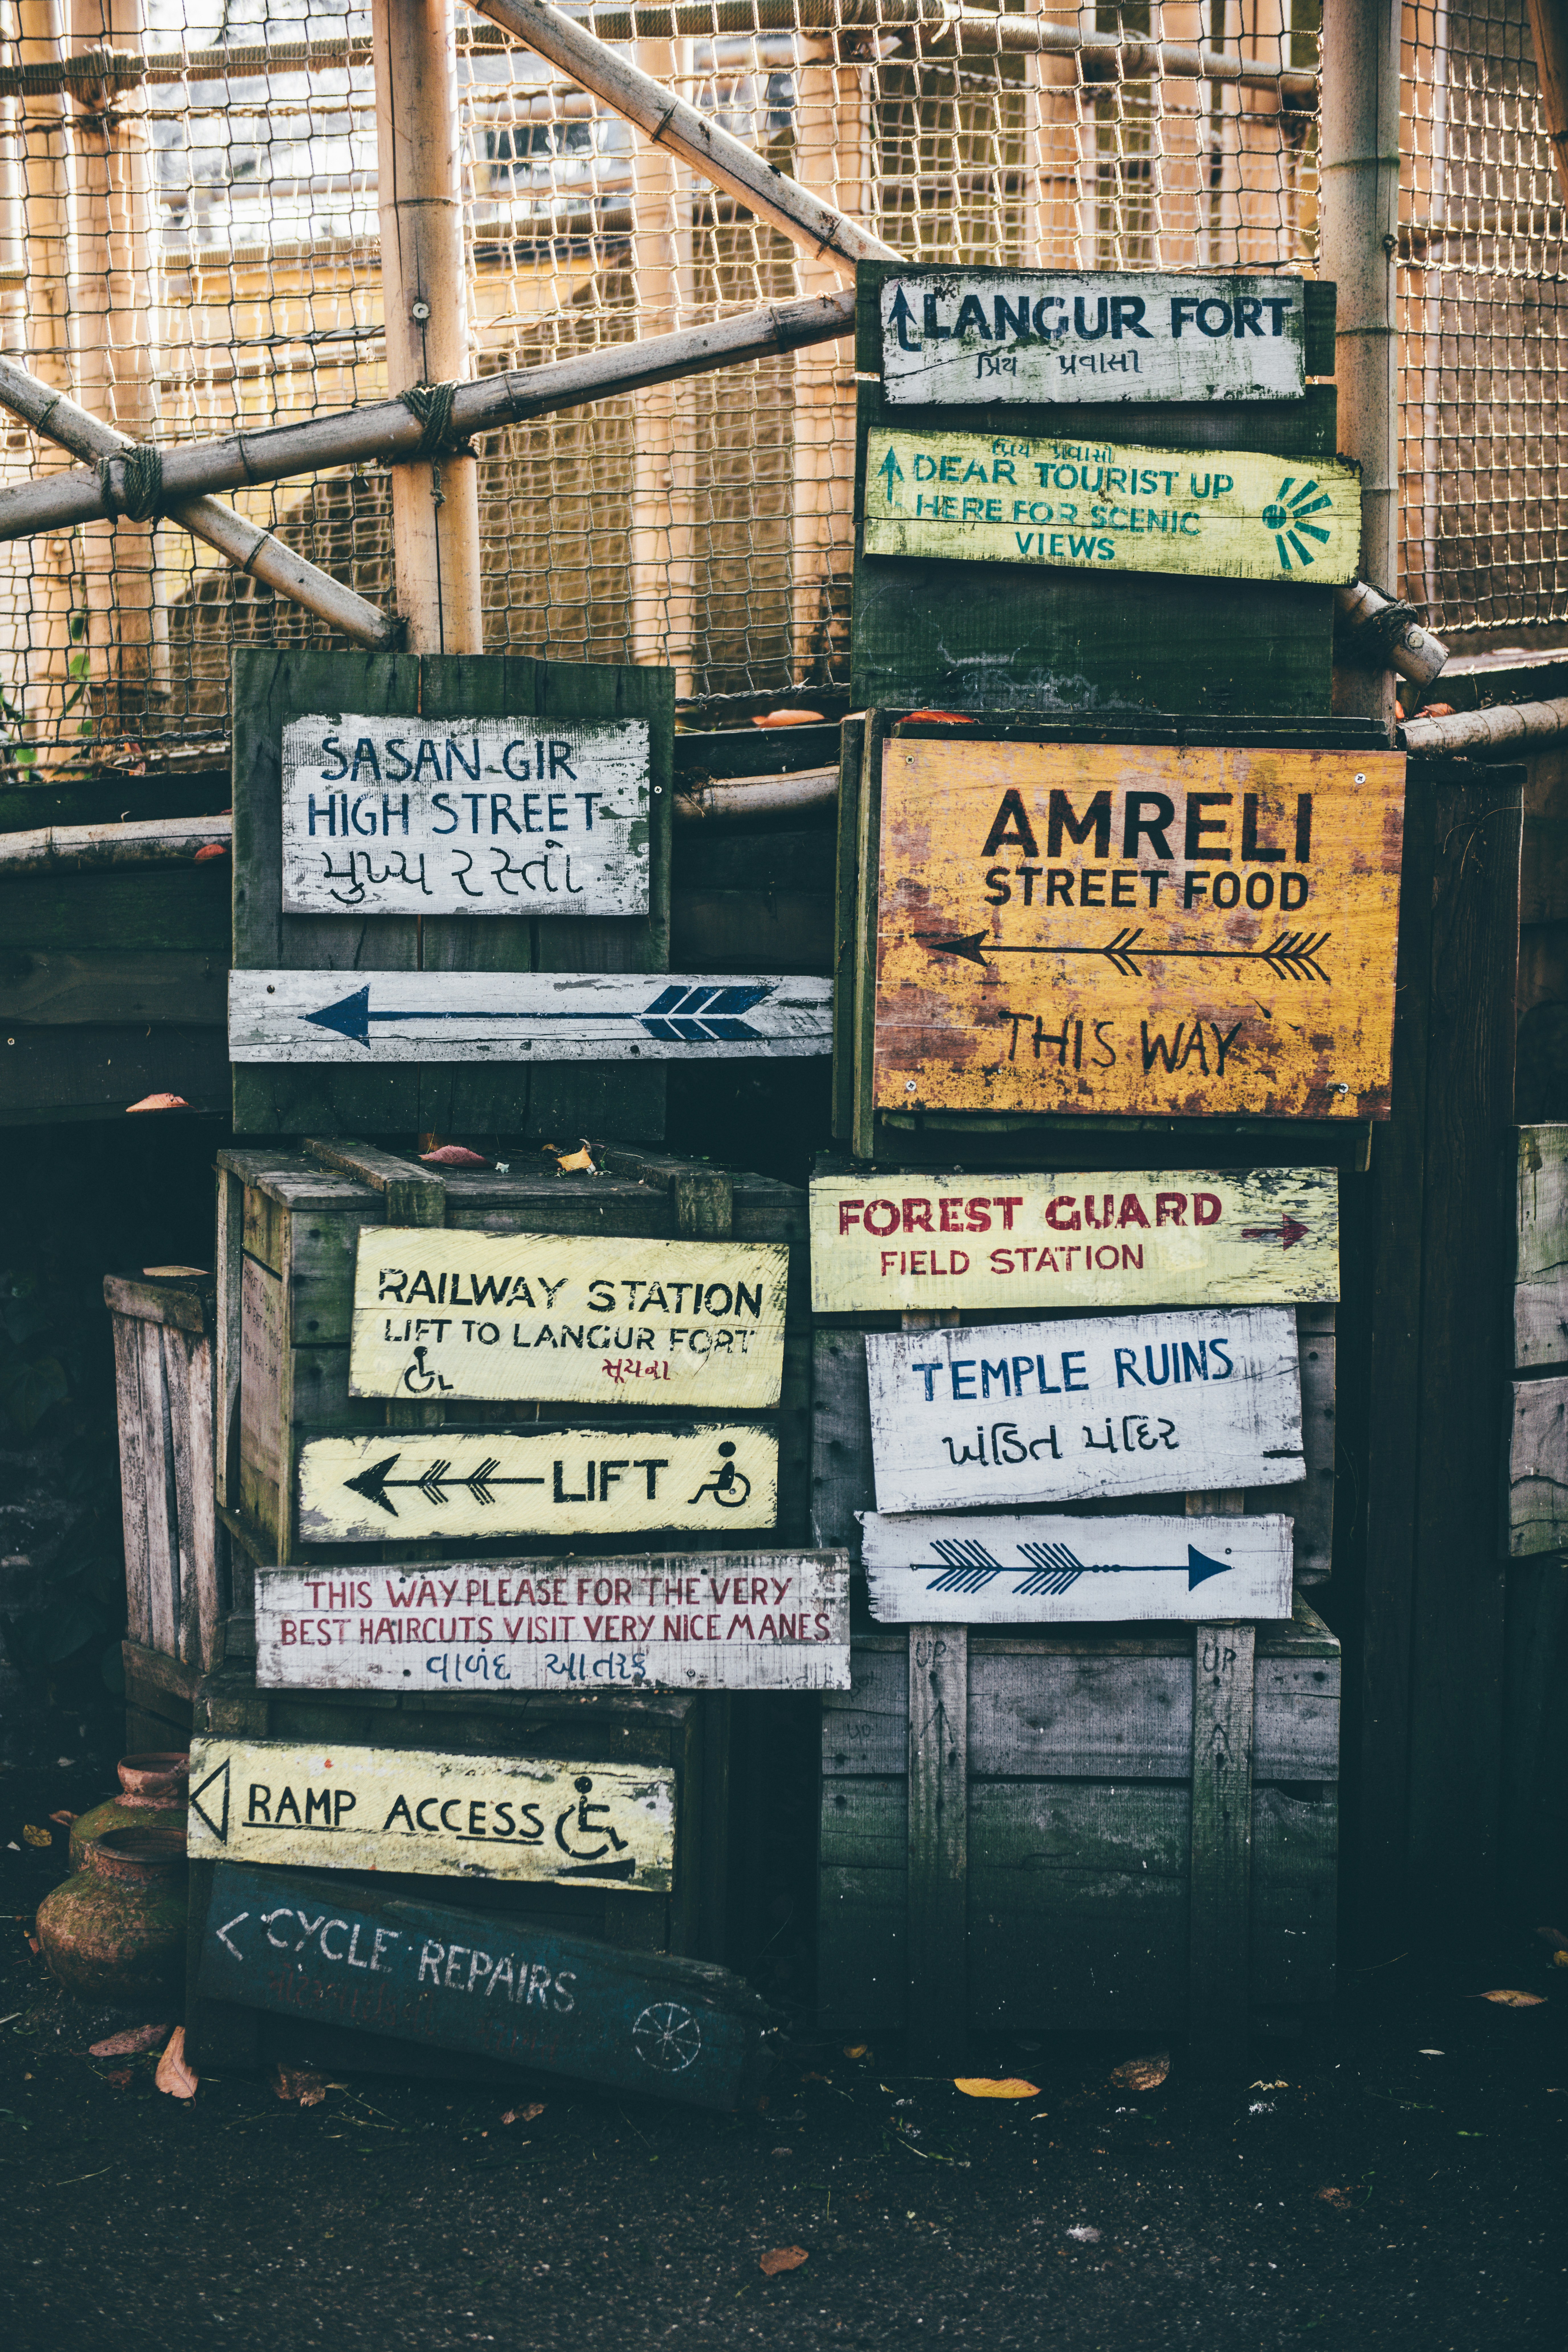 LANGUR FORT
પ્રિય પ્રવાસી
પ્રિય પ્રવાસી
DEAR TOURIST UP
HERE FOR SCENIC
VIEWS
SASAN-GIR
HIGH STREET
મુખ્ય રસ્તો
AMRELI
STREET FOOD
THIS WAY
FOREST GUARD
FIELD STATION
RAILWAY STATION
LIFT TO LANGUR FORT
સૂચના
TEMPLE RUINS
ખંડિત મંદિર
LIFT
THIS WAY PLEASE FOR THE VERY
BEST HAIRCUTS VISIT VERY NICE MANES
વાળંદ આ તરફ
UP
UP
UP
RAMP ACCESS
CYCLE REPAIRS